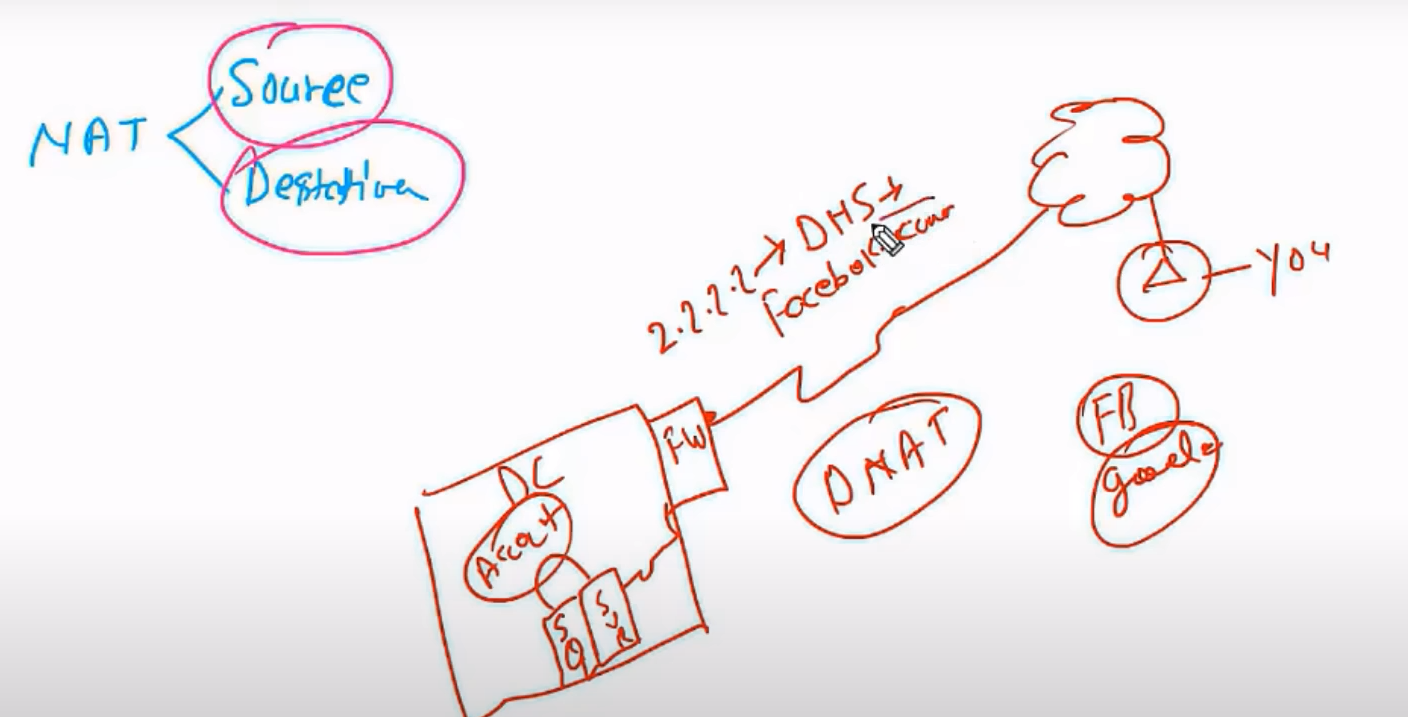 NAT
Source
Destation
2.2.2.2 → DHS →
Facebok.com
YOU
FW
DNAT
FB
Google
DC
Accout
SQ
SVR